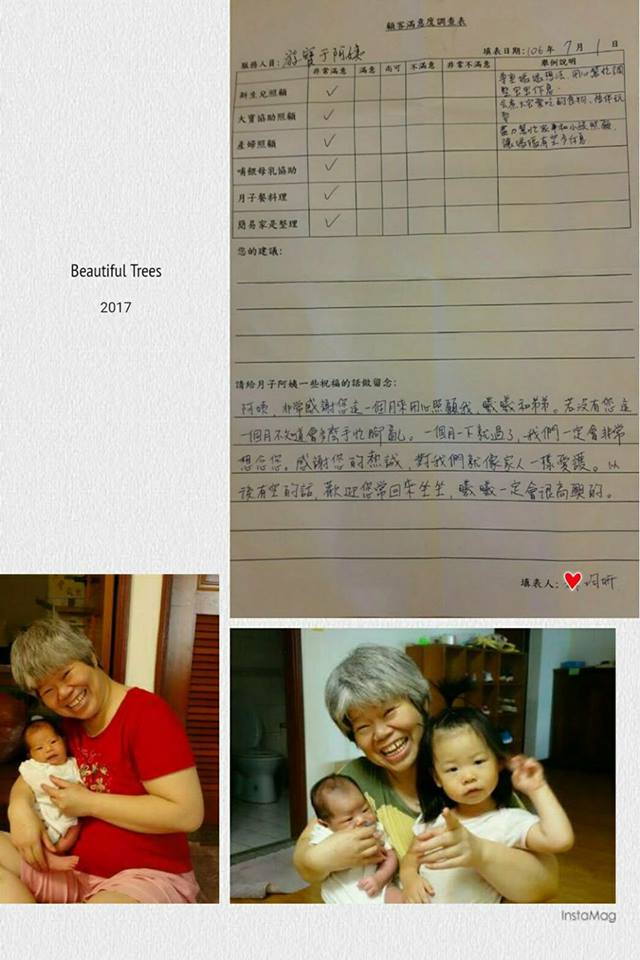 Beautiful Trees
2017
顧客滿意度調查表
服務人員: 阿姨
填表日期:106年 7月 1日
非常滿意 滿意 尚可 不滿意 非常不滿意 舉例說明
新生兒照顧 ✓
大寶協助照顧 ✓
產婦照顧 ✓
哺餵母乳協助 ✓
月子餐料理 ✓
簡易家是整理 ✓
尊重媽媽想法,用心幫忙調
整寶寶作息。
盡力幫忙家事和小孩照顧,
讓媽媽有至多休息
您的建議:
請給月子阿姨一些祝福的話做留念:
阿姨,非常感謝您這一個月來用心照顧我、曦曦和弟弟。若沒有您這
一個月不知道會多麼手忙腳亂。一個月一下就過了,我們一定會非常
想念您。感謝您的熱誠,對我們就像家人一樣愛護。以
後有空的話,歡迎您常回來坐坐,曦曦一定會很高興的。
填表人:
InstaMag